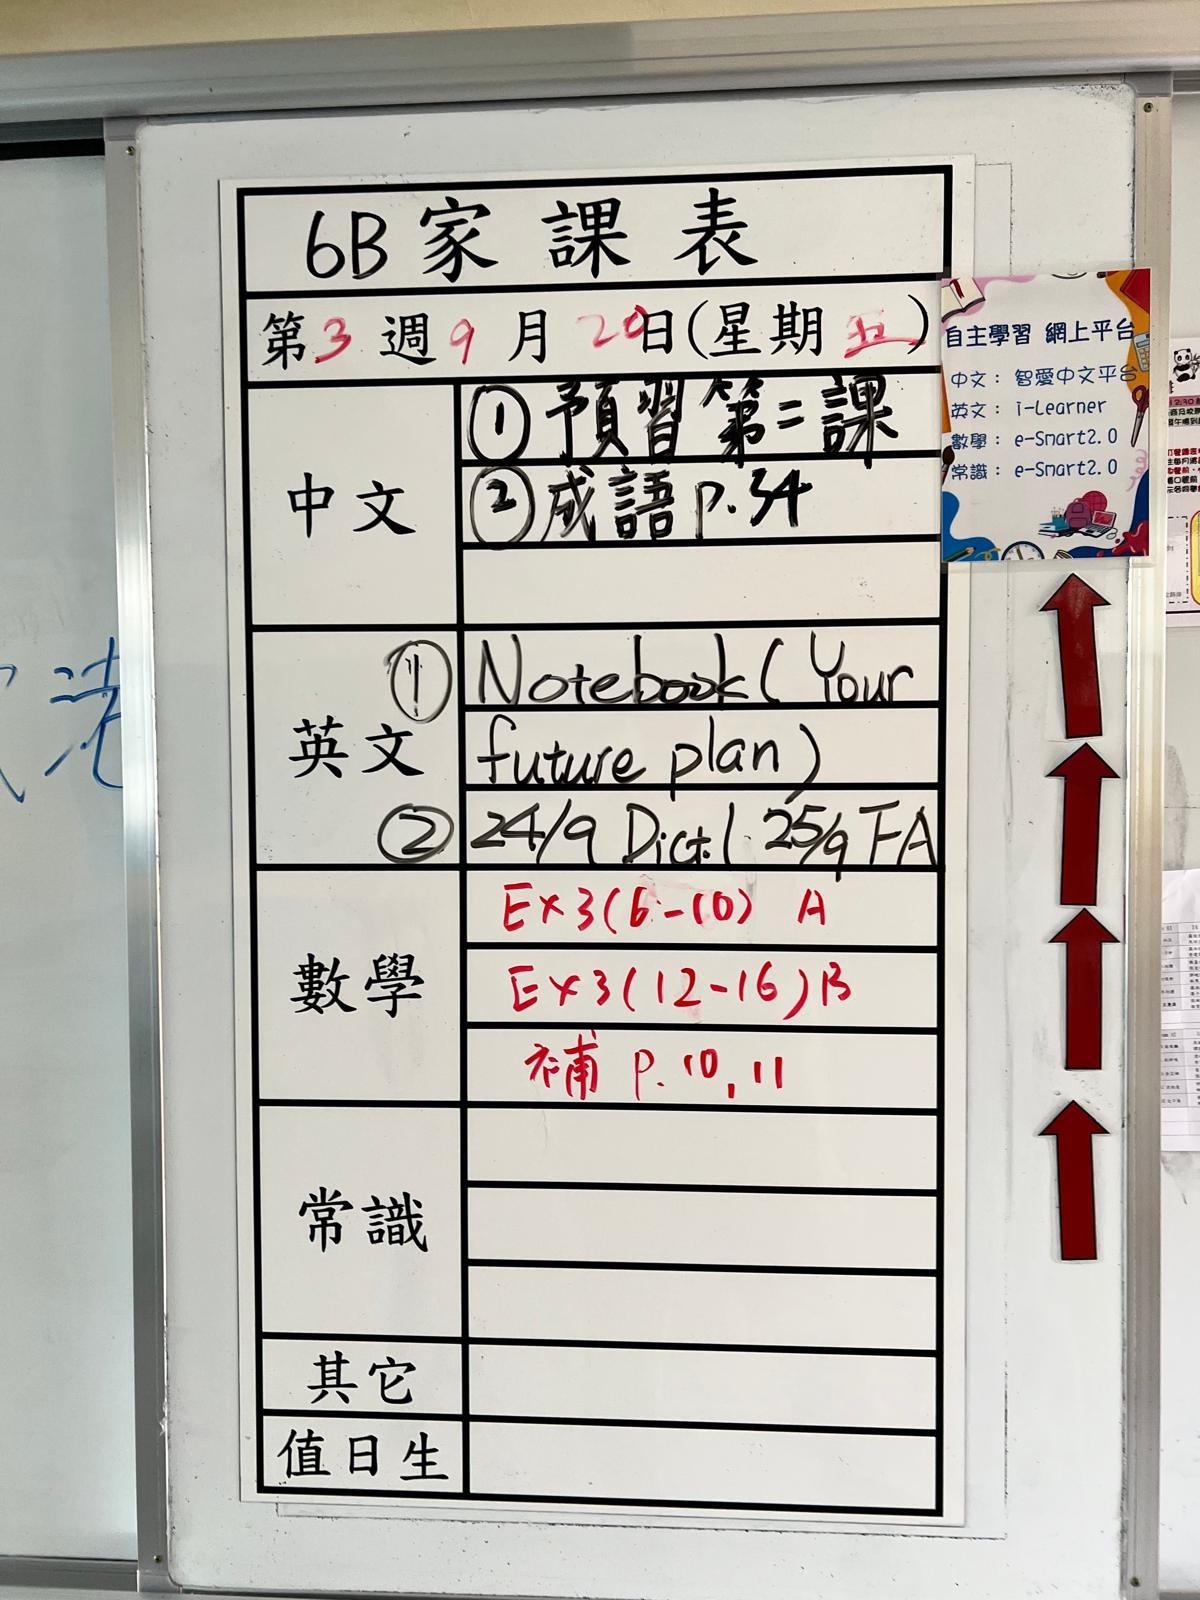 6B家課表
第3週9月20日(星期五)
中文
①預習第二課
②成語p.34
英文
① Notebook( Your
future plan)
② 24/9 Dict.1 25/9 FA
數學
Ex3(6-10) A
Ex3(12-16)B
補 p.10,11
常識
其它
值日生
自主學習 網上平台
中文： 智愛中文平台
英文： i-Learner
數學： e-Smart2.0
常識： e-Smart2.0